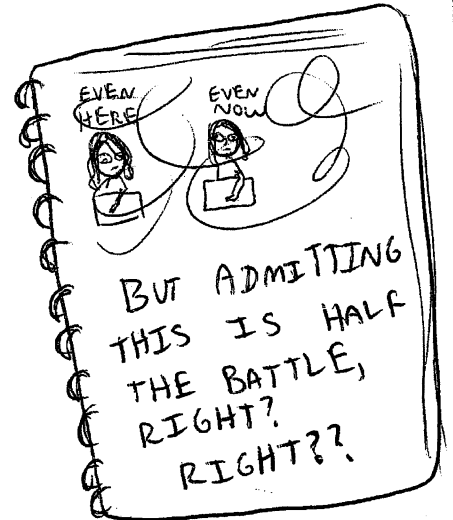 EVEN
HERE
EVEN
NOW
BUT ADMITTING
THIS IS HALF
THE BATTLE,
RIGHT?
RIGHT??